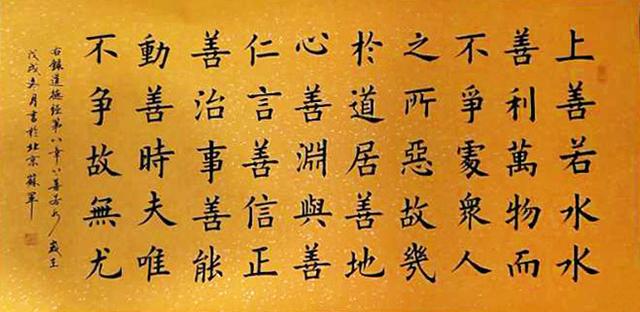 上善若水水
善利萬物而
不爭處衆人
之所惡故幾
於道居善地
心善淵與善
仁言善信正
善治事善能
動善時夫唯
不争故無尤
右錄道德經第八章上善若水 歲在
戊戌冬月書於北京 蘇軍